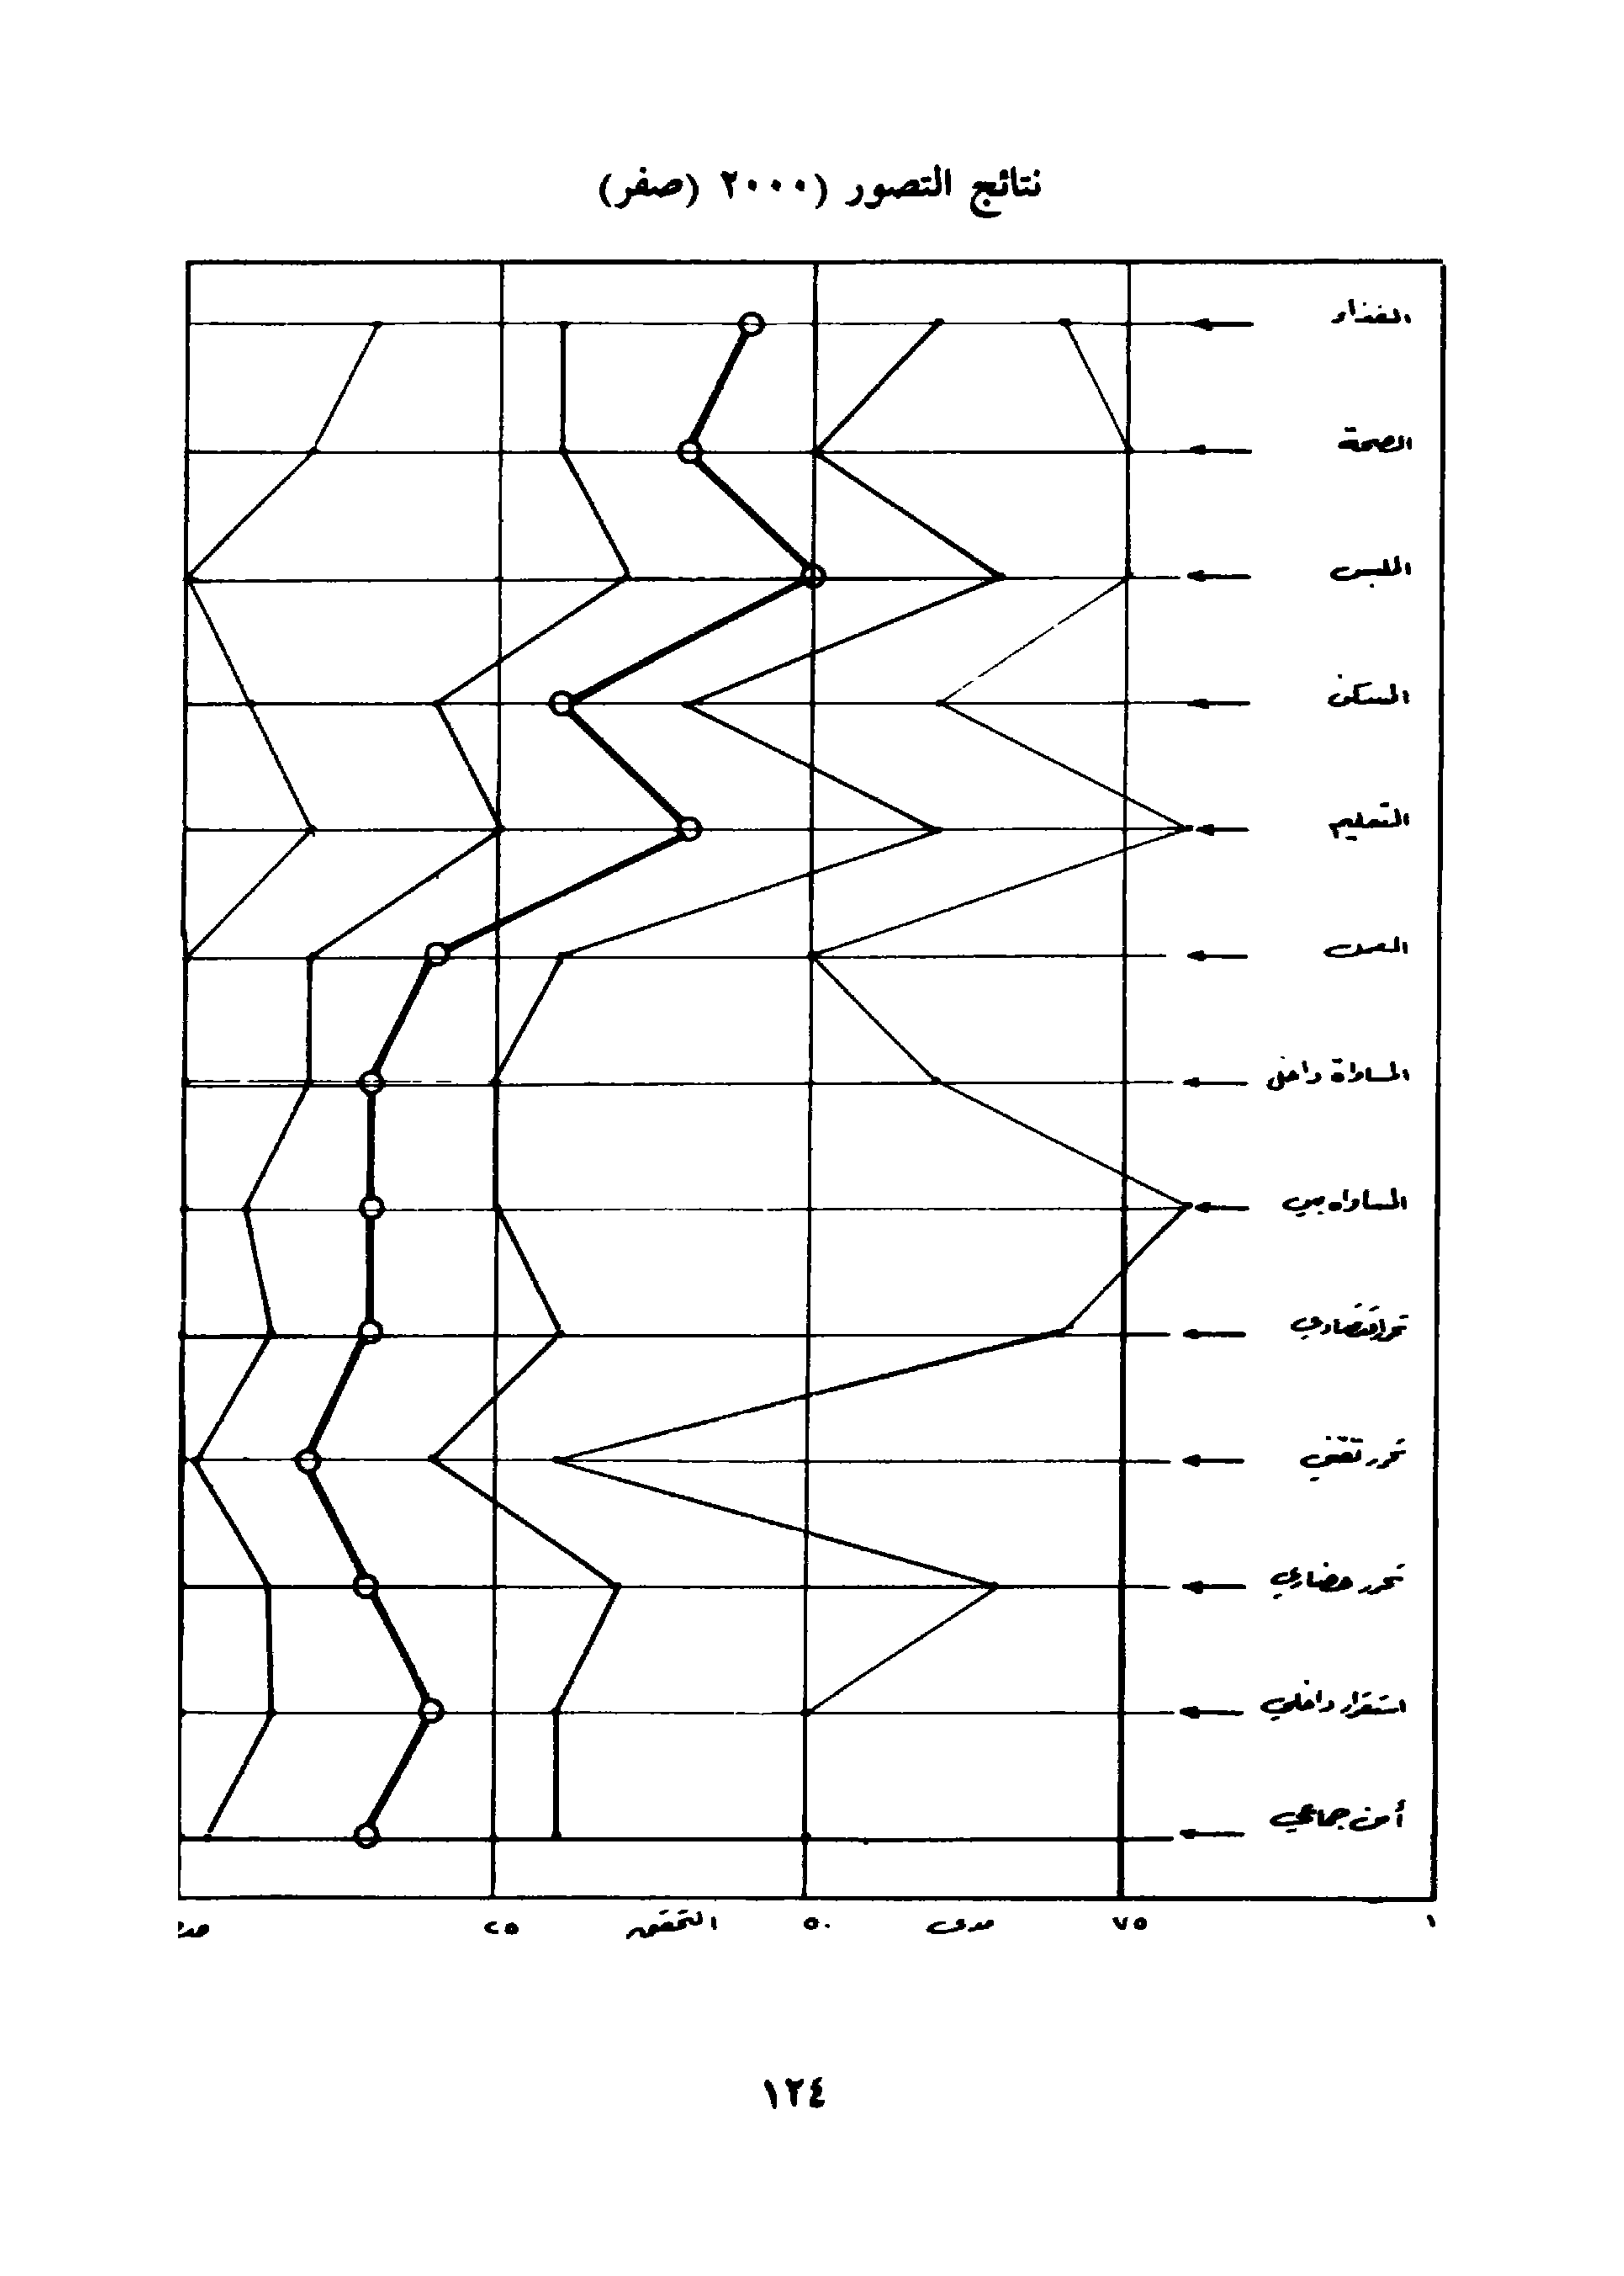 نتائج التصور (٢٠٠٠ (صفر)
الغذاء
الصحة
اللبس
السكن
التعليم
المساواة داخل
المساواه بين
تحرر اقتصادي
تحرر تقني
تحرر حضاري
استقرار داخلي
أمن جماعي
٢٥ التحقق ٥٠ مدى ٧٥ ١
١٢٤